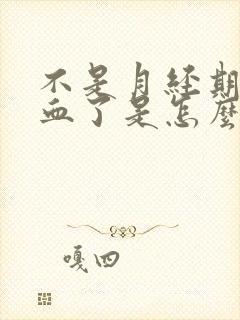 不是月经期
血了是怎麼
嘎四